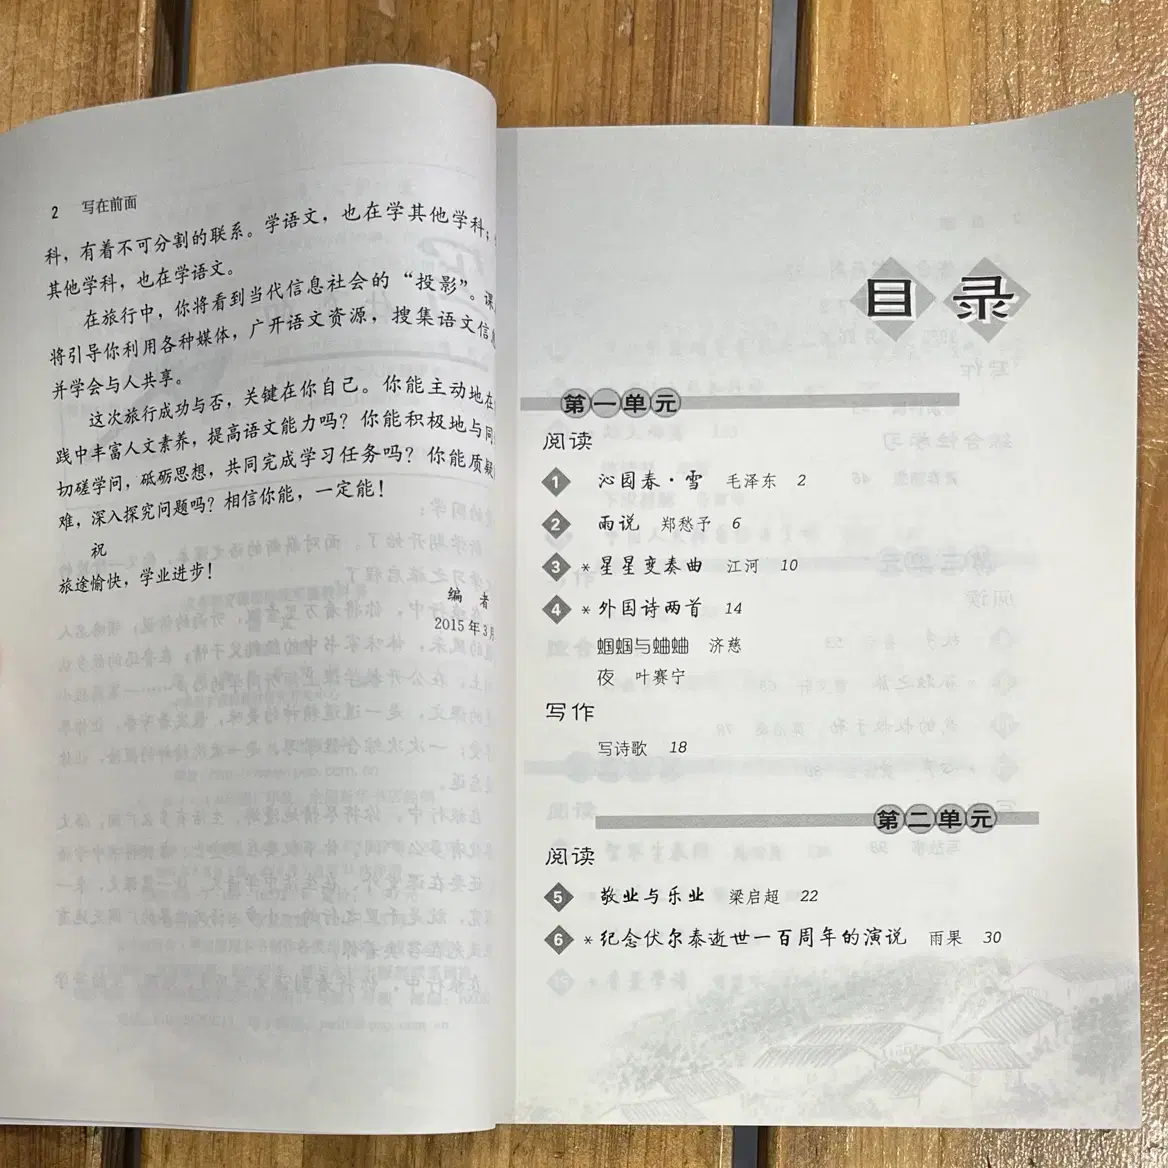 2 写在前面
科，有着不可分割的联系。学语文，也在学其他学科；
其他学科，也在学语文。
在旅行中，你将看到当代信息社会的“投影”。课
将引导你利用各种媒体，广开语文资源，搜集语文信息
并学会与人共享。
这次旅行成功与否，关键在你自己。你能主动地在
践中丰富人文素养，提高语文能力吗？你能积极地与同
切磋学问，砥砺思想，共同完成学习任务吗？你能质疑
难，深入探究问题吗？相信你能，一定能！
祝
旅途愉快，学业进步！
编者
2015年3月
目录
第一单元
阅读
1 沁园春·雪 毛泽东 2
2 雨说 郑愁予 6
3 *星星变奏曲 江河 10
4 *外国诗两首 14
蝈蝈与蛐蛐 济慈
夜 叶赛宁
写作
写诗歌 18
第二单元
阅读
5 敬业与乐业 梁启超 22
6 *纪念伏尔泰逝世一百周年的演说 雨果 30